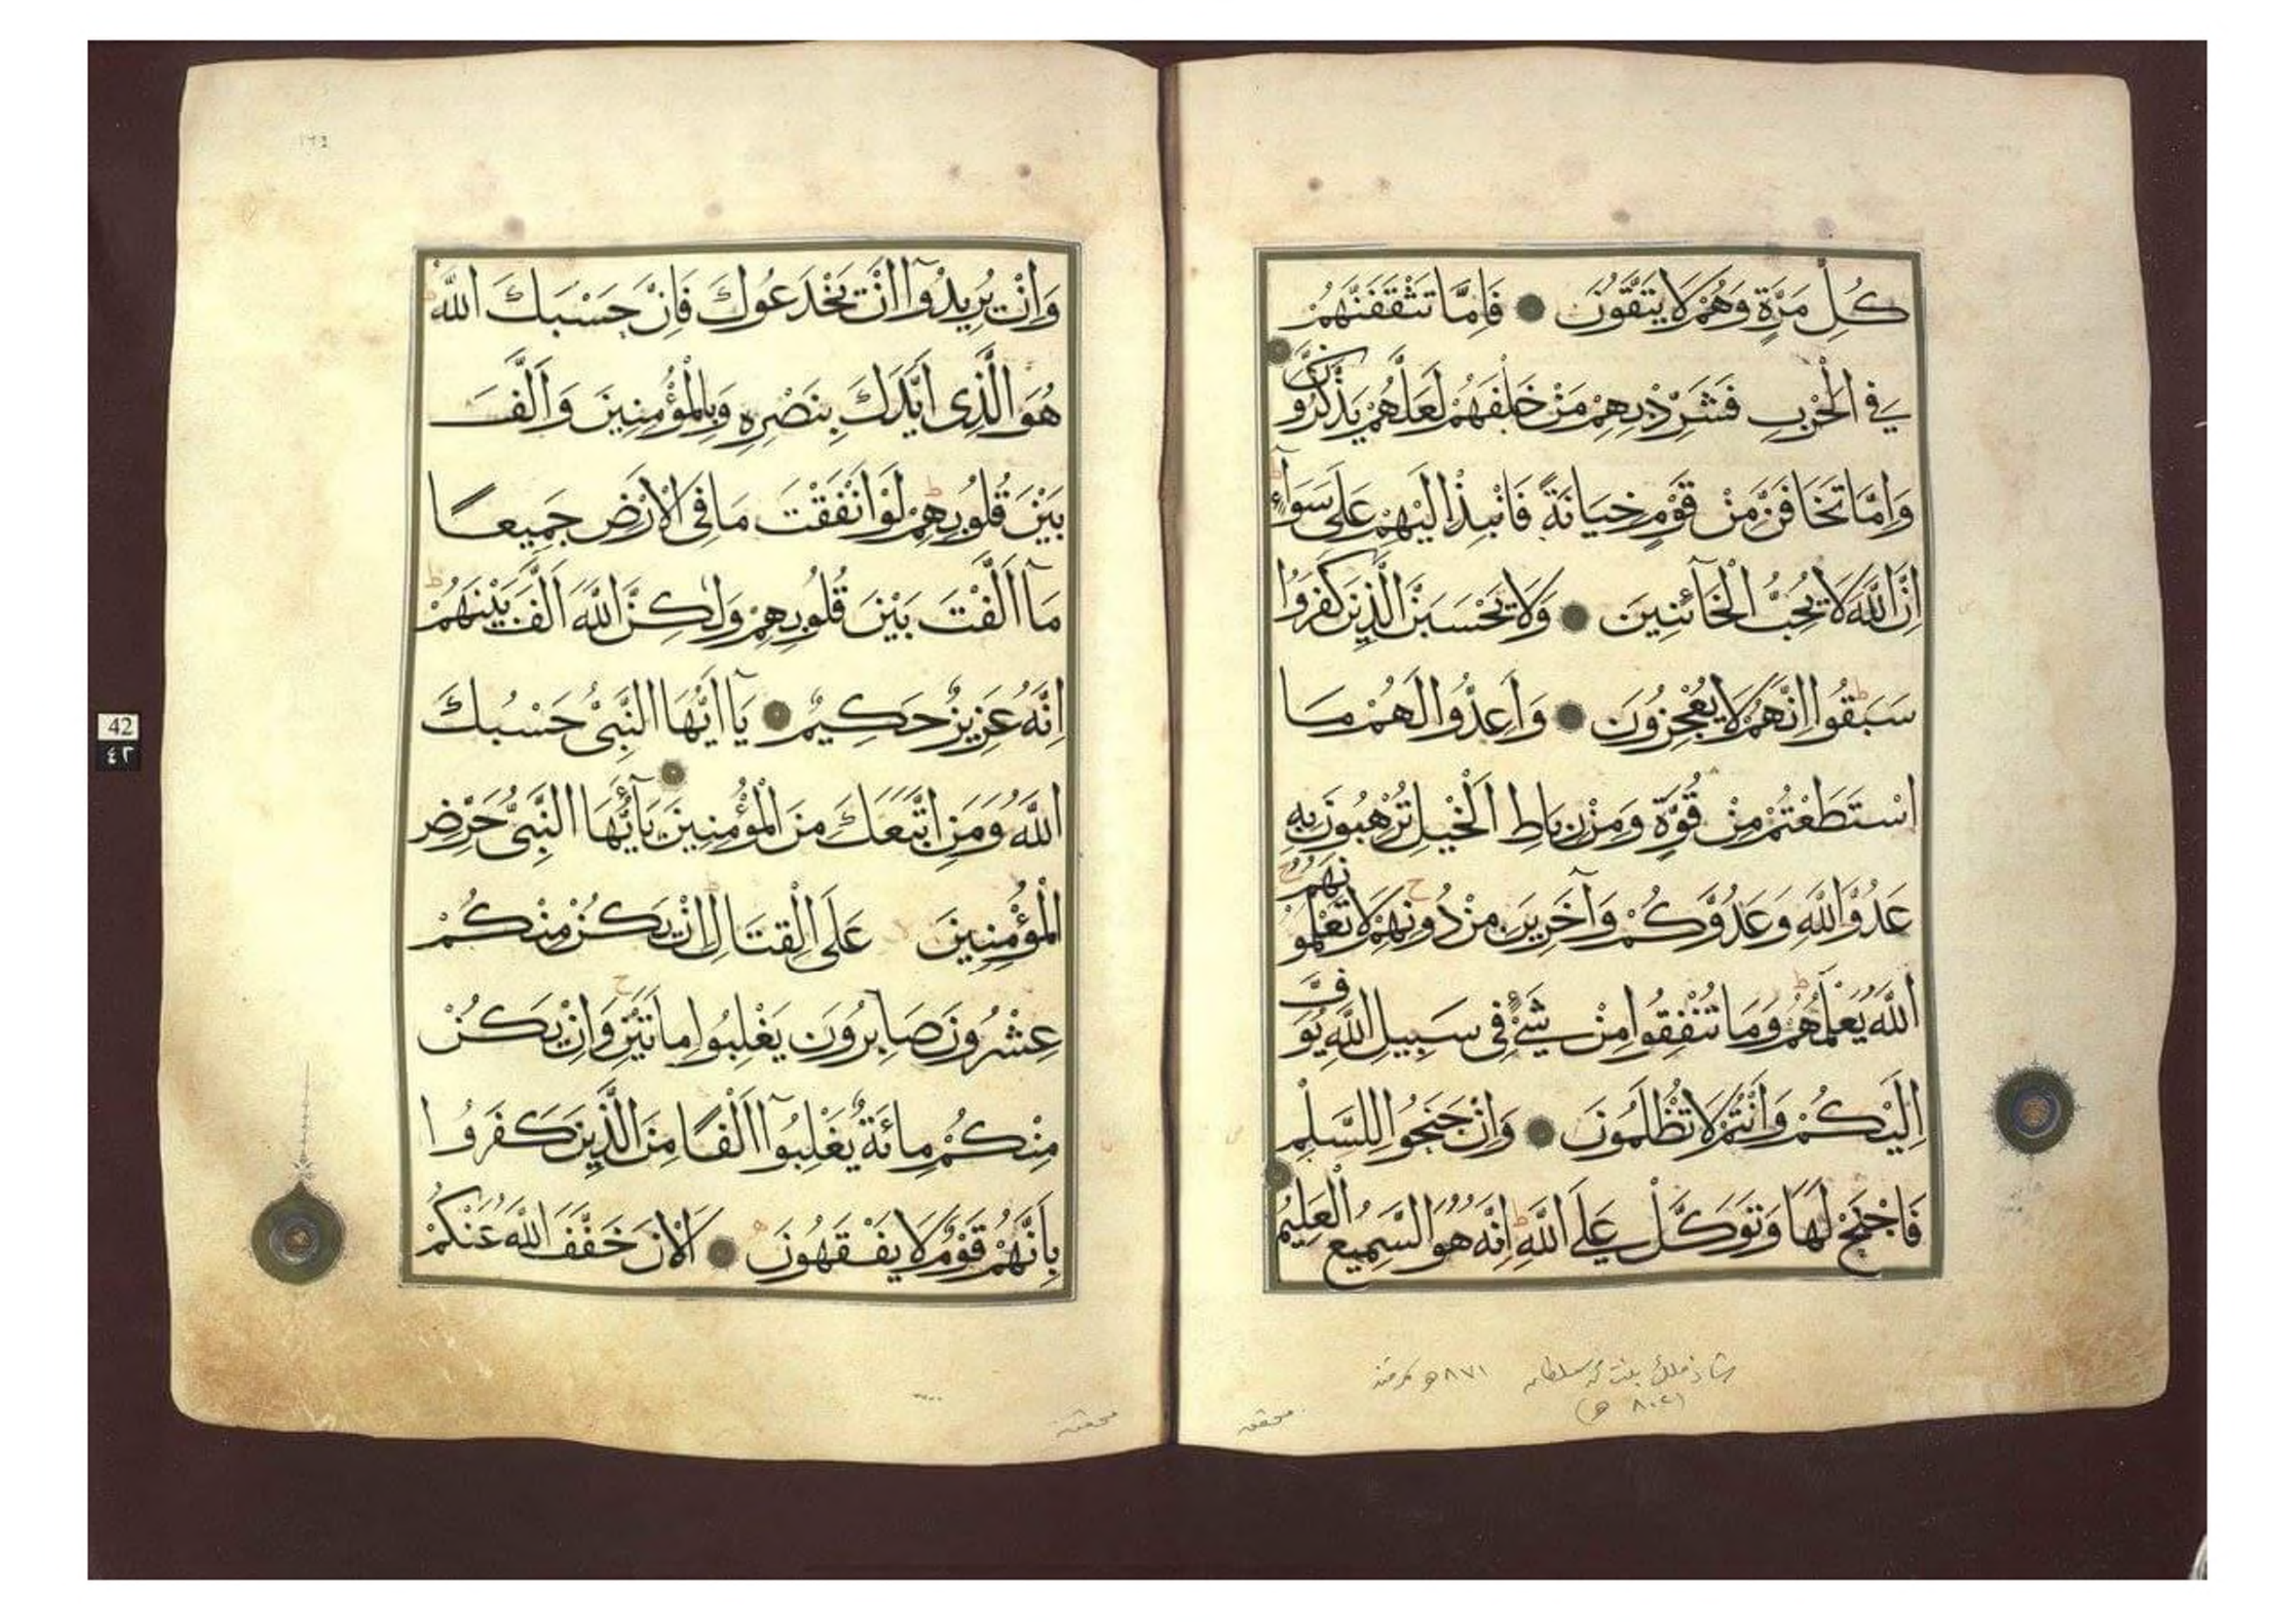 كُلِّ مَرَّةٍ وَهُمْ لَا يَتَّقُونَ فَاِمَّا تَثْقَفَنَّهُمْ
فِي الْحَرْبِ فَشَرِّدْ بِهِمْ مَنْ خَلْفَهُمْ لَعَلَّهُمْ يَذَّكَّرُونَ
وَاِمَّا تَخَافَنَّ مِنْ قَوْمٍ خِيَانَةً فَانْبِذْ اِلَيْهِمْ عَلَى سَوَآءٍ
اِنَّ اللَّهَ لَا يُحِبُّ الْخَآئِنِينَ وَلَا يَحْسَبَنَّ الَّذِينَ كَفَرُوا
سَبَقُوا اِنَّهُمْ لَا يُعْجِزُونَ وَاَعِدُّوا لَهُمْ مَا
اسْتَطَعْتُمْ مِنْ قُوَّةٍ وَمِنْ رِبَاطِ الْخَيْلِ تُرْهِبُونَ بِهِ
عَدُوَّ اللَّهِ وَعَدُوَّكُمْ وَآخَرِينَ مِنْ دُونِهِمْ لَا تَعْلَمُونَهُمُ
اللَّهُ يَعْلَمُهُمْ وَمَا تُنْفِقُوا مِنْ شَيْءٍ فِي سَبِيلِ اللَّهِ يُوَفَّ
اِلَيْكُمْ وَاَنْتُمْ لَا تُظْلَمُونَ وَاِنْ جَنَحُوا لِلسَّلْمِ
فَاجْنَحْ لَهَا وَتَوَكَّلْ عَلَى اللَّهِ اِنَّهُ هُوَ السَّمِيعُ الْعَلِيمُ
٨٧١ هـ
(٨٠٢ هـ)
محقق
وَاِنْ يُرِيدُوآ اَنْ يَخْدَعُوكَ فَاِنَّ حَسْبَكَ اللَّهُ
هُوَ الَّذِي اَيَّدَكَ بِنَصْرِهِ وَبِالْمُؤْمِنِينَ وَاَلَّفَ
بَيْنَ قُلُوبِهِمْ لَوْ اَنْفَقْتَ مَا فِي الْاَرْضِ جَمِيعًا
مَآ اَلَّفْتَ بَيْنَ قُلُوبِهِمْ وَلٰكِنَّ اللَّهَ اَلَّفَ بَيْنَهُمْ
اِنَّهُ عَزِيزٌ حَكِيمٌ يَآ اَيُّهَا النَّبِيُّ حَسْبُكَ
اللَّهُ وَمَنِ اتَّبَعَكَ مِنَ الْمُؤْمِنِينَ يَآ اَيُّهَا النَّبِيُّ حَرِّضِ
الْمُؤْمِنِينَ عَلَى الْقِتَالِ اِنْ يَكُنْ مِنْكُمْ
عِشْرُونَ صَابِرُونَ يَغْلِبُوا مِائَتَيْنِ وَاِنْ يَكُنْ
مِنْكُمْ مِائَةٌ يَغْلِبُوآ اَلْفًا مِنَ الَّذِينَ كَفَرُوا
بِاَنَّهُمْ قَوْمٌ لَا يَفْقَهُونَ اَلْاٰنَ خَفَّفَ اللَّهُ عَنْكُمْ
محقق
42
٤٢